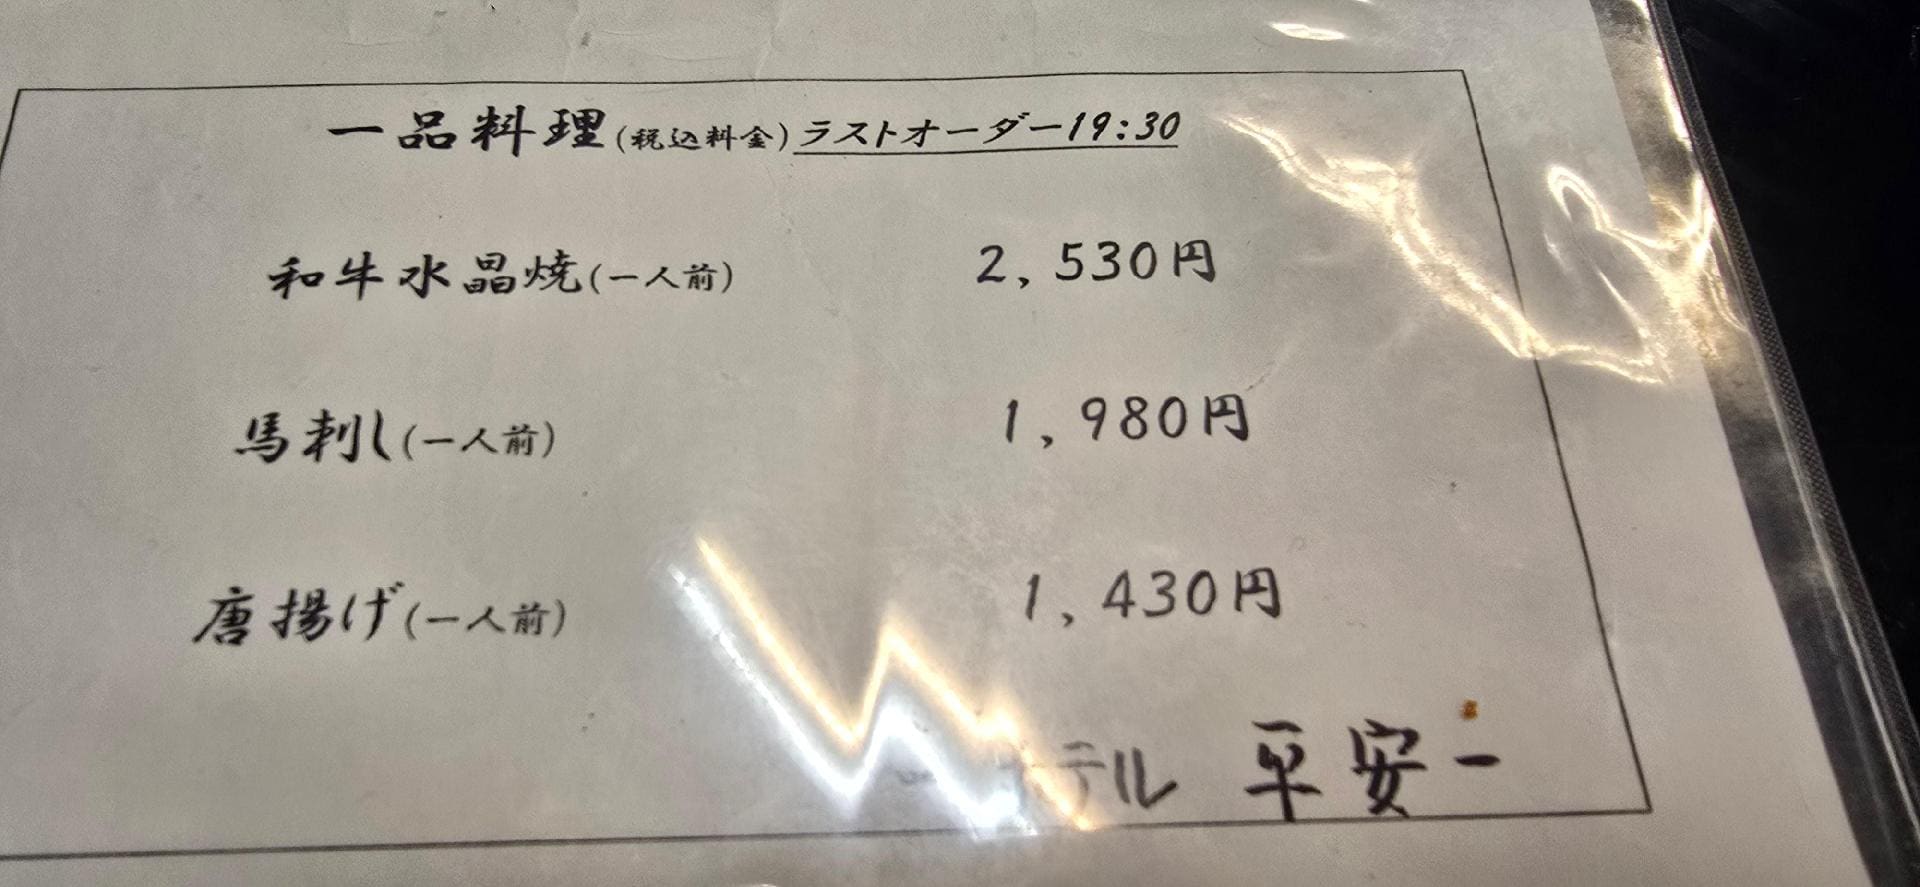 一品料理(税込料金)ラストオーダー19:30
和牛水晶焼(一人前) 2,530円
馬刺し(一人前) 1,980円
唐揚げ(一人前) 1,430円
テル 平安一